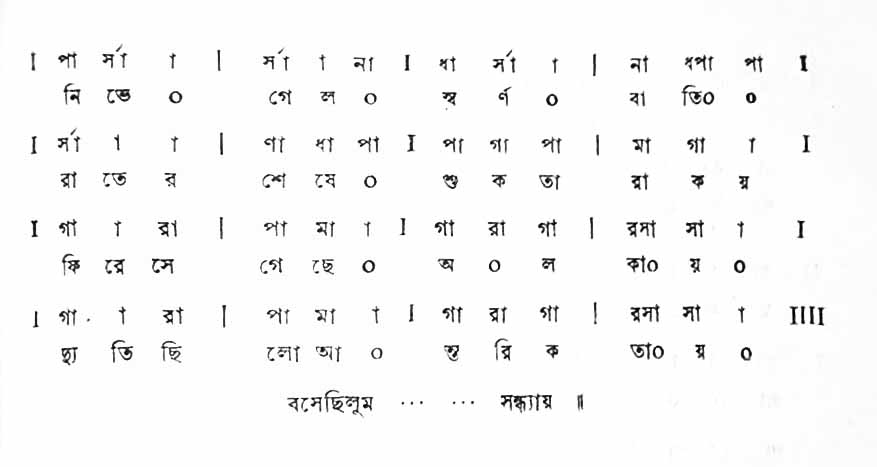 I পা র্সা া | র্সা া না I ধা র্সা া | না ধপা পা I
নি ভে ০ গে ল ০ স্ব র্ণ ০ বা তি০ ০
I র্সা া া | ণা ধা পা I পা গা পা | মা গা া I
রা তে র শে ষে ০ শু ক তা রা ক য়
I গা া রা | পা মা া I গা রা গা | রসা সা া I
ফি রে সে গে ছে ০ অ ০ ল কা০ য় ০
I গা া রা | পা মা া I গা রা গা | রসা সা া IIII
ছা তি ছি লো আ ০ ন্ত রি ক তা০ য় ০
বসেছিলুম ... ... সন্ধ্যায় ॥